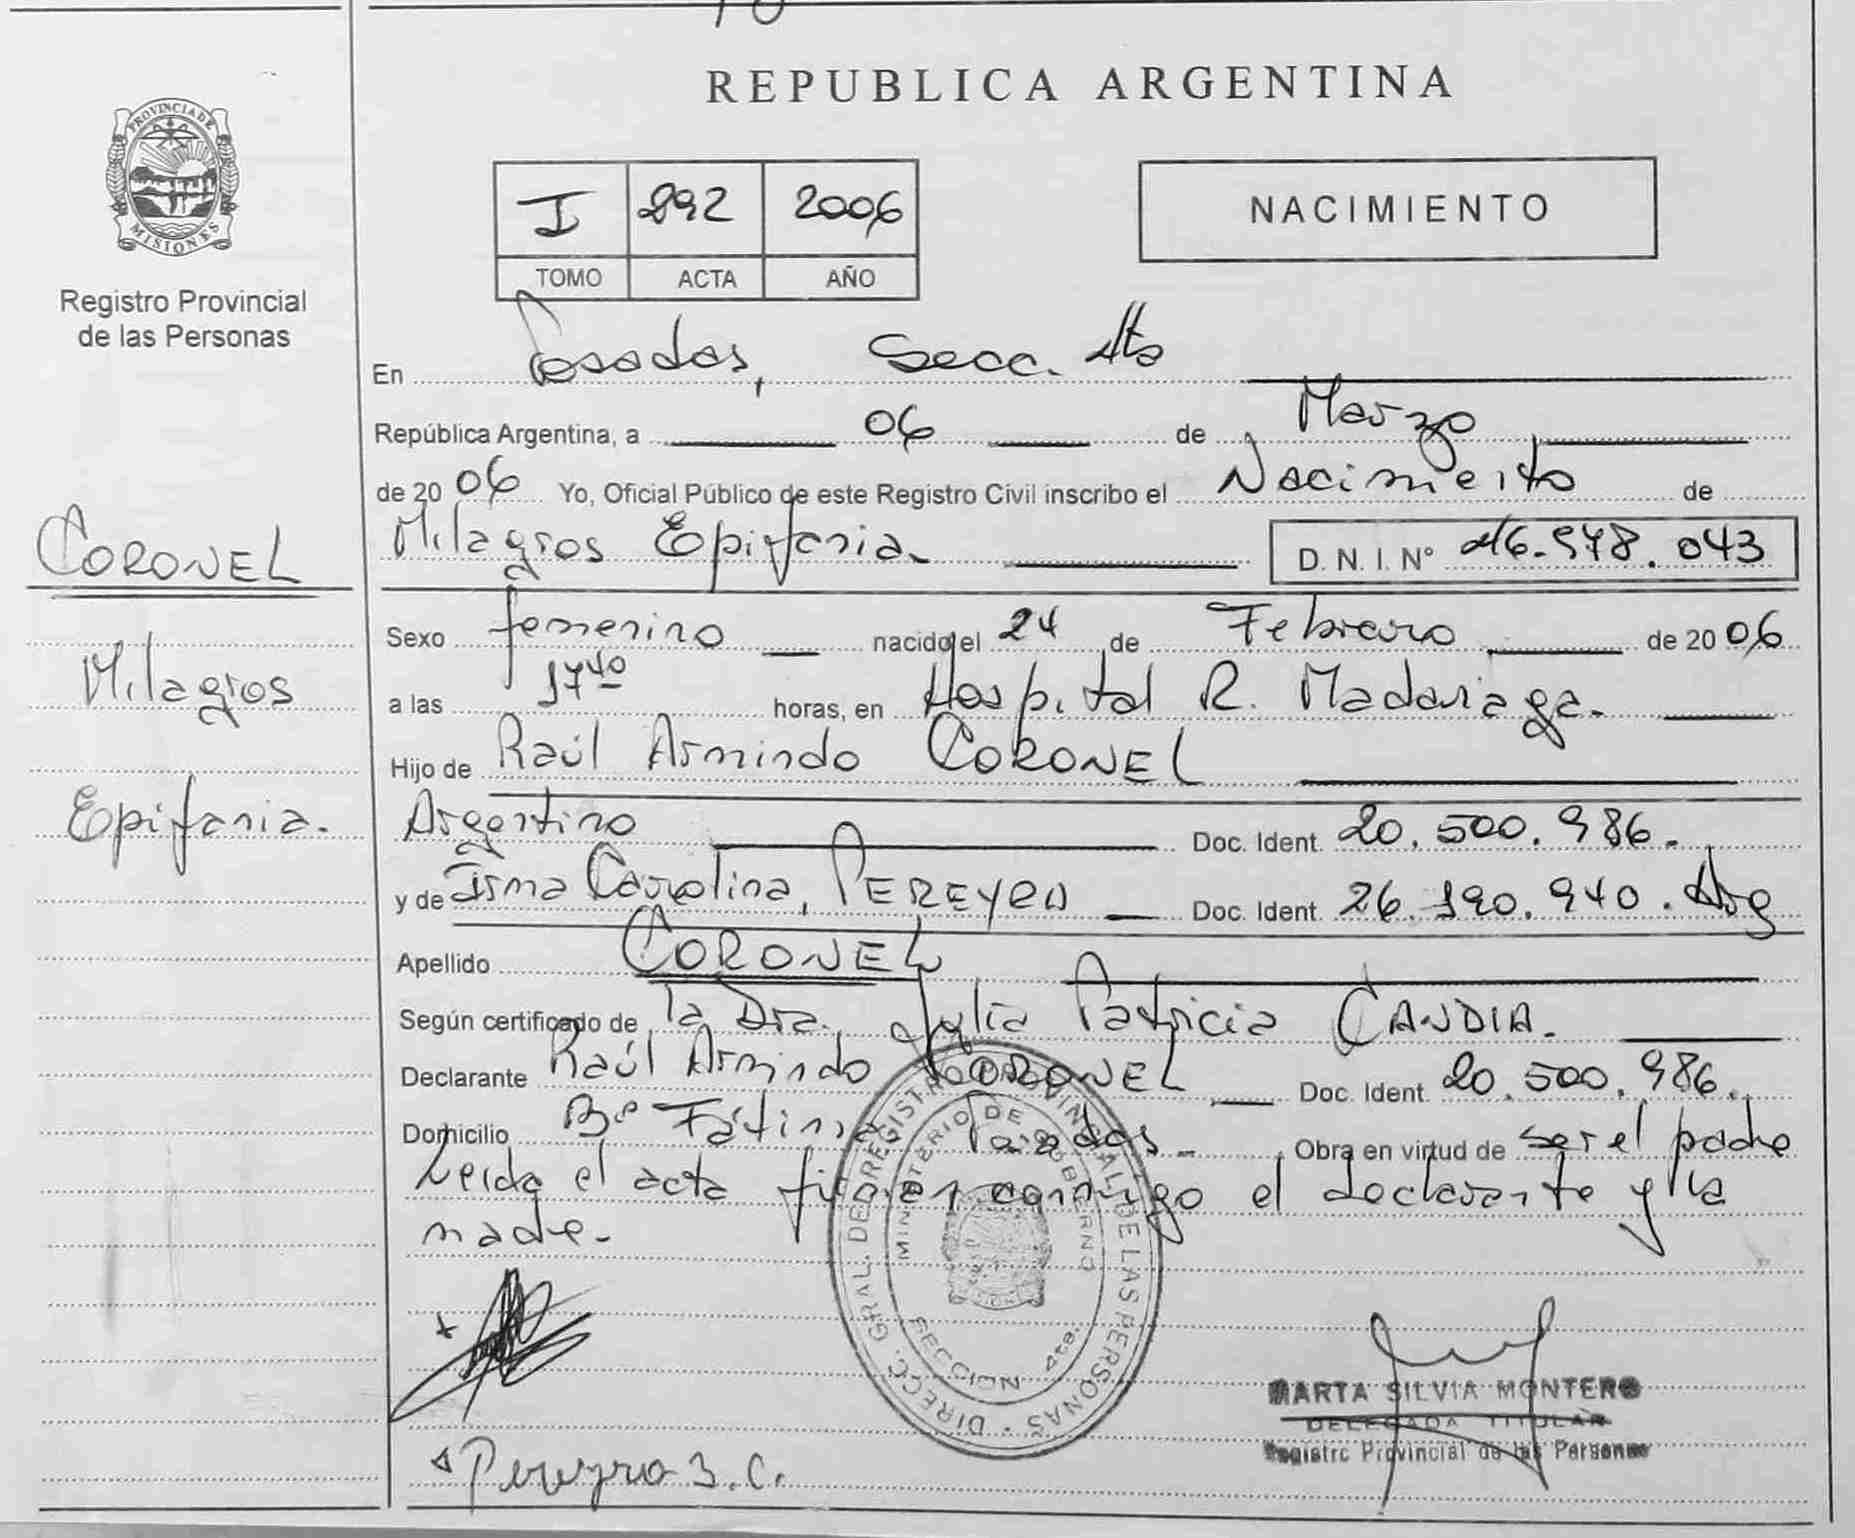 REPUBLICA ARGENTINA
PROVINCIA DE
MISIONES
Registro Provincial
de las Personas
I 292 2006
TOMO ACTA AÑO
NACIMIENTO
En Posadas, Secc. 4ta
República Argentina, a 06 de Marzo
de 2006 Yo, Oficial Público de este Registro Civil inscribo el Nacimiento de
Milagros Epifania. D. N. I. Nº 46.978.043
CORONEL
Milagros
Epifania.
Sexo femenino nacido el 24 de Febrero de 2006
a las 17 40 horas, en Hospital R. Madariaga.
Hijo de Raúl Armindo CORONEL
Argentino Doc. Ident. 20.500.986.
y de Irma Carolina, PEREYRA Doc. Ident. 26.190.940. Arg
Apellido CORONEL
Según certificado de la Dra. Julia Patricia CANDIA.
Declarante Raúl Armindo CORONEL Doc. Ident. 20.500.986.
Domicilio Bº Fátima Posadas - Obra en virtud de ser el padre
Leida el acta firman conmigo el declarante y la
madre.
DIRECC. GRAL. DE REGISTRO PROVINCIAL DE LAS PERSONAS
MINISTERIO DE GOBIERNO
SECCION 4ta.
MARTA SILVIA MONTERO
DELEGADA TITULAR
Registro Provincial de las Personas
Pereyra I. C.